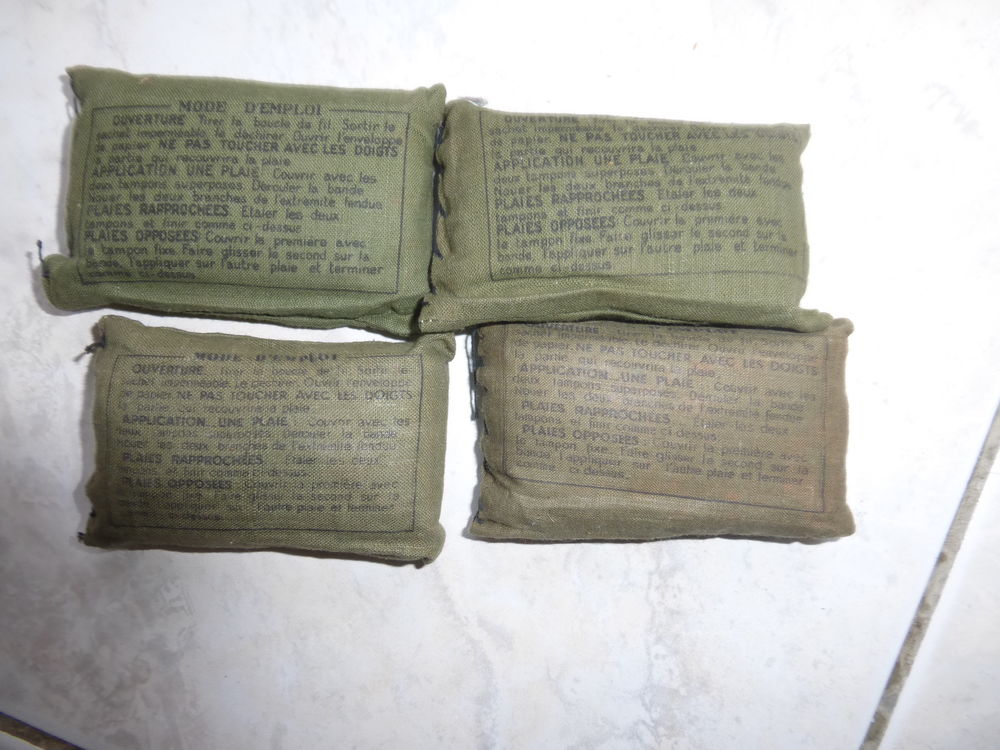 MODE D'EMPLOI
OUVERTURE Tirer la boucle de fil Sortir le
sachet imperméable le déchirer Ouvrir l'enveloppe
de papier NE PAS TOUCHER AVEC LES DOIGTS
la partie qui recouvrira la plaie
APPLICATION UNE PLAIE Couvrir avec les
deux tampons superposés Dérouler la bande
Nouer les deux branches de l'extrémité fendue
PLAIES RAPPROCHÉES Etaler les deux
tampons et finir comme ci-dessus
PLAIES OPPOSÉES Couvrir la première avec
le tampon fixe Faire glisser le second sur la
bande, l'appliquer sur l'autre plaie et terminer
comme ci-dessus
OUVERTURE
sachet imperméable
de papier NE PAS TOUCHER AVEC LES DOIGTS
la partie qui recouvrira la plaie
APPLICATION UNE PLAIE Couvrir avec les
deux tampons superposés Dérouler la bande
Nouer les deux branches de l'extrémité fendue
PLAIES RAPPROCHÉES Etaler les deux
tampons et finir comme ci-dessus
PLAIES OPPOSÉES Couvrir la première avec
le tampon fixe Faire glisser le second sur la
bande, l'appliquer sur l'autre plaie et terminer
comme ci-dessus
MODE D'EMPLOI
OUVERTURE Tirer la boucle de fil Sortir le
sachet imperméable le déchirer Ouvrir l'enveloppe
de papier NE PAS TOUCHER AVEC LES DOIGTS
la partie qui recouvrira la plaie
APPLICATION UNE PLAIE Couvrir avec les
deux tampons superposés Dérouler la bande
Nouer les deux branches de l'extrémité fendue
PLAIES RAPPROCHÉES Etaler les deux
tampons et finir comme ci-dessus
PLAIES OPPOSÉES Couvrir la première avec
le tampon fixe Faire glisser le second sur la
bande l'appliquer sur l'autre plaie et terminer
OUVERTURE
de papier NE PAS TOUCHER AVEC LES DOIGTS
la partie qui recouvrira la plaie
APPLICATION UNE PLAIE Couvrir avec les
deux tampons superposés Dérouler la bande
Nouer les deux branches de l'extrémité fendue
PLAIES RAPPROCHÉES Etaler les deux
tampons et finir comme ci-dessus
PLAIES OPPOSÉES Couvrir la première avec
le tampon fixe. Faire glisser le second sur la
bande l'appliquer sur l'autre plaie et terminer
comme ci-dessus